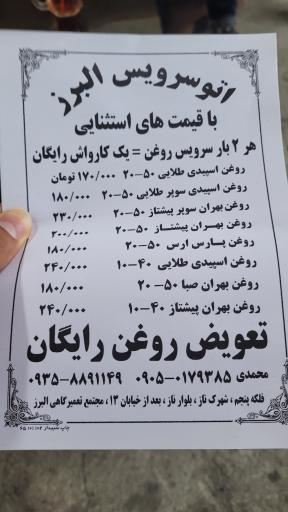 اتوسرویس البرز
با قیمت های استثنایی
هر ۲ بار سرویس روغن = یک کارواش رایگان
روغن اسپیدی طلایی ۵۰-۲۰ ۱۷۰/۰۰۰ تومان
روغن اسپیدی سوپر طلایی ۵۰-۲۰ ۱۸۰/۰۰۰
روغن بهران سوپر پیشتاز ۵۰-۲۰ ۲۳۰/۰۰۰
روغن بهران پیشتاز ۵۰-۲۰ ۲۰۰/۰۰۰
روغن پارس ارس ۵۰-۲۰ ۱۸۰/۰۰۰
روغن اسپیدی طلایی ۴۰-۱۰ ۲۴۰/۰۰۰
روغن بهران صبا ۵۰-۲۰ ۱۸۰/۰۰۰
روغن بهران پیشتاز ۴۰-۱۰ ۲۴۰/۰۰۰
تعویض روغن رایگان
محمدی ۰۹۰۵-۰۱۷۹۳۸۵ ۰۹۳۵-۸۸۹۱۱۴۹
فلکه پنجم ، شهرک ناز ، بلوار ناز ، بعد از خیابان ۱۳ ، مجتمع تعمیرگاهی البرز
چاپ